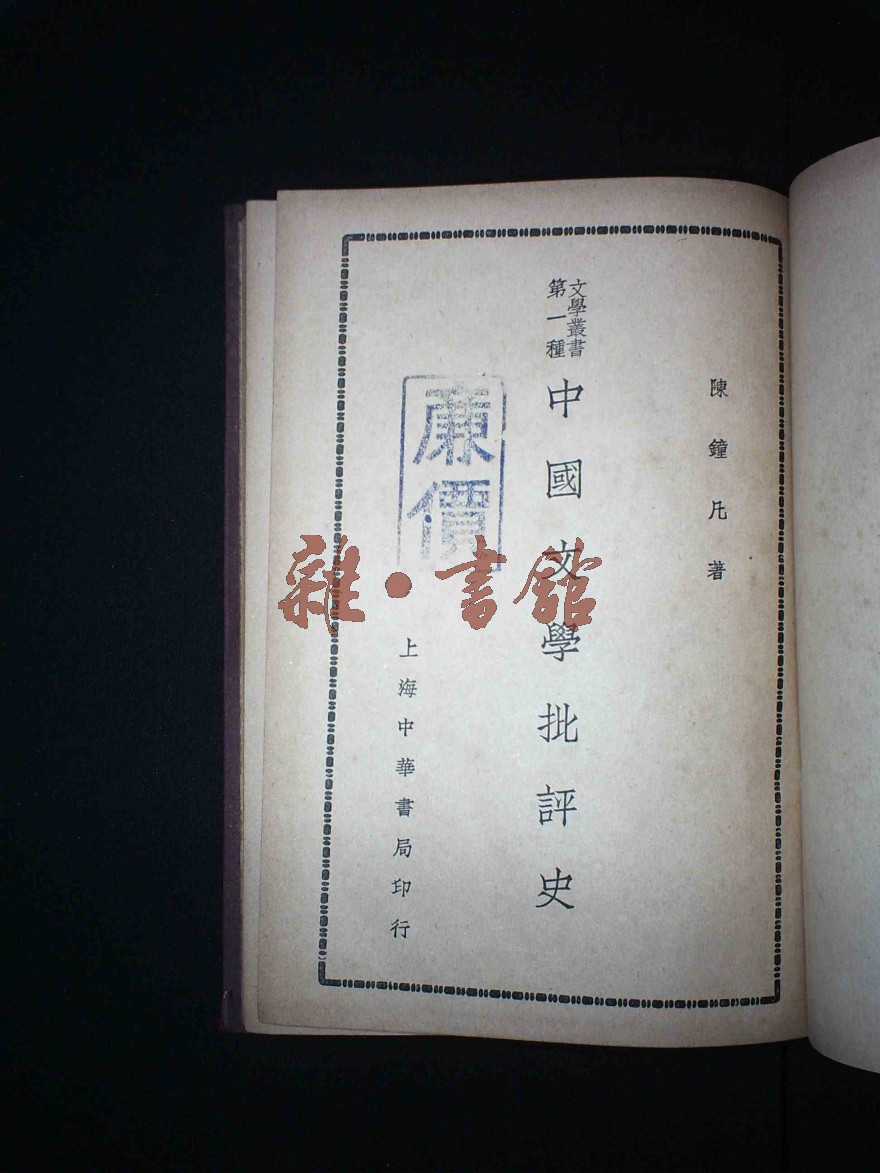 陳鐘凡著
文學叢書
第一種
中國文學批評史
廉價
上海中華書局印行
雜·書館